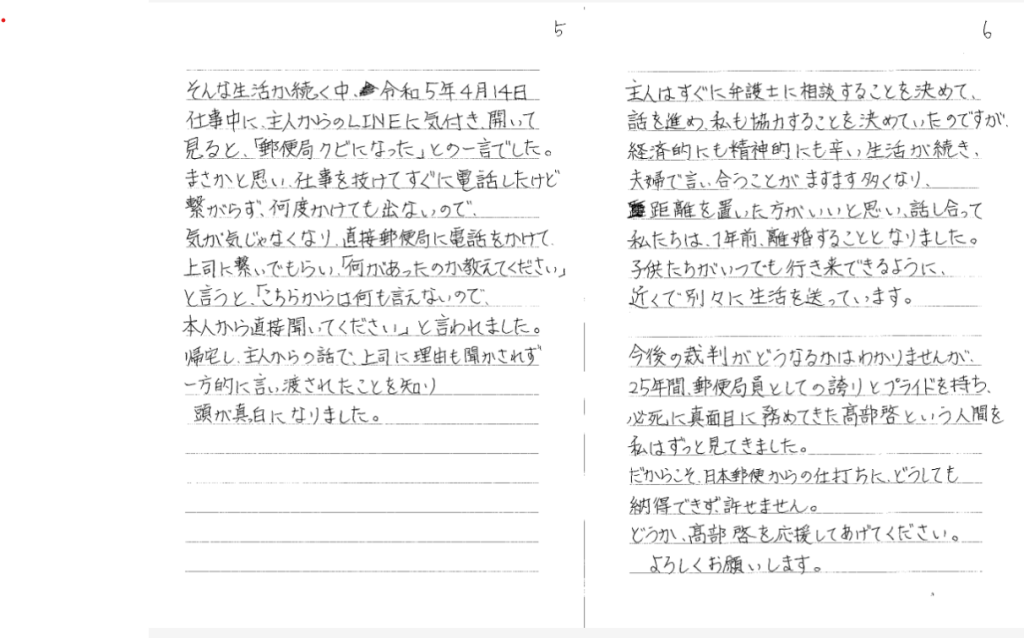 5
そんな生活が続く中、令和5年4月14日
仕事中に、主人からのLINEに気付き、開いて
見ると、「郵便局クビになった」との一言でした。
まさかと思い、仕事を抜けてすぐに電話したけど
繋がらず、何度かけても出ないので、
気が気じゃなくなり、直接郵便局に電話をかけて、
上司に繋いでもらい、「何があったのか教えてください」
と言うと、「こちらからは何も言えないので、
本人から直接聞いてください」と言われました。
帰宅し、主人からの話で、上司に理由も聞かされず
一方的に言い渡されたことを知り
頭が真白になりました。
6
主人はすぐに弁護士に相談することを決めて、
話を進め、私も協力することを決めていたのですが、
経済的にも精神的にも辛い生活が続き、
夫婦で言い合うことがますます多くなり、
距離を置いた方がいいと思い、話し合って
私たちは、1年前、離婚することとなりました。
子供たちがいつでも行き来できるように、
近くで別々に生活を送っています。
今後の裁判がどうなるかはわかりませんが、
25年間、郵便局員としての誇りとプライドを持ち、
必死に真面目に務めてきた髙部啓という人間を
私はずっと見てきました。
だからこそ、日本郵便からの仕打ちに、どうしても
納得できず、許せません。
どうか、髙部啓を応援してあげてください。
よろしくお願いします。